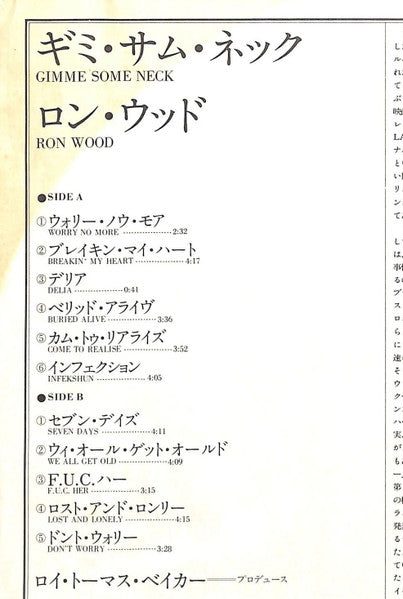 ギミ・サム・ネック
GIMME SOME NECK
ロン・ウッド
RON WOOD
●SIDE A
①ウォリー・ノウ・モア
WORRY NO MORE 2:32
②ブレイキン・マイ・ハート
BREAKIN' MY HEART 4:17
③デリア
DELIA 0:41
④ベリッド・アライヴ
BURIED ALIVE 3:36
⑤カム・トゥ・リアライズ
COME TO REALISE 3:52
⑥インフェクション
INFEKSHUN 4:05
●SIDE B
①セブン・デイズ
SEVEN DAYS 4:11
②ウィ・オール・ゲット・オールド
WE ALL GET OLD 4:09
③F.U.C.ハー
F.U.C. HER 3:15
④ロスト・アンド・ロンリー
LOST AND LONELY 4:15
⑤ドント・ウォリー
DON'T WORRY 3:28
ロイ・トーマス・ベイカー——プロデュース